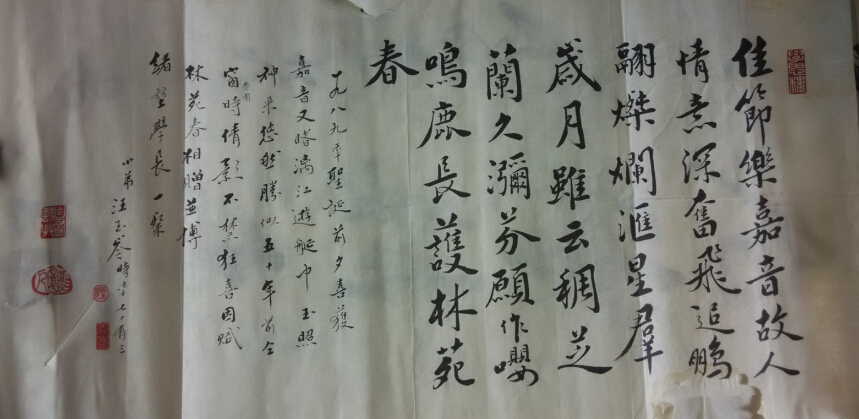 佳節樂嘉音故人
情意深奮飛追鵬
翮燦爛滙星羣
歲月雖云稠芝
蘭久瀰芬願作嚶
鳴鹿長護林苑
春
一九八九年聖誕前夕喜獲
嘉音又睹漓江遊艇中玉照
神采悠然勝似五十年前仝
窗時倩影不禁狂喜因賦
林苑春相贈並博
緒堃學長一粲
小弟汪玉岑時年七十有三